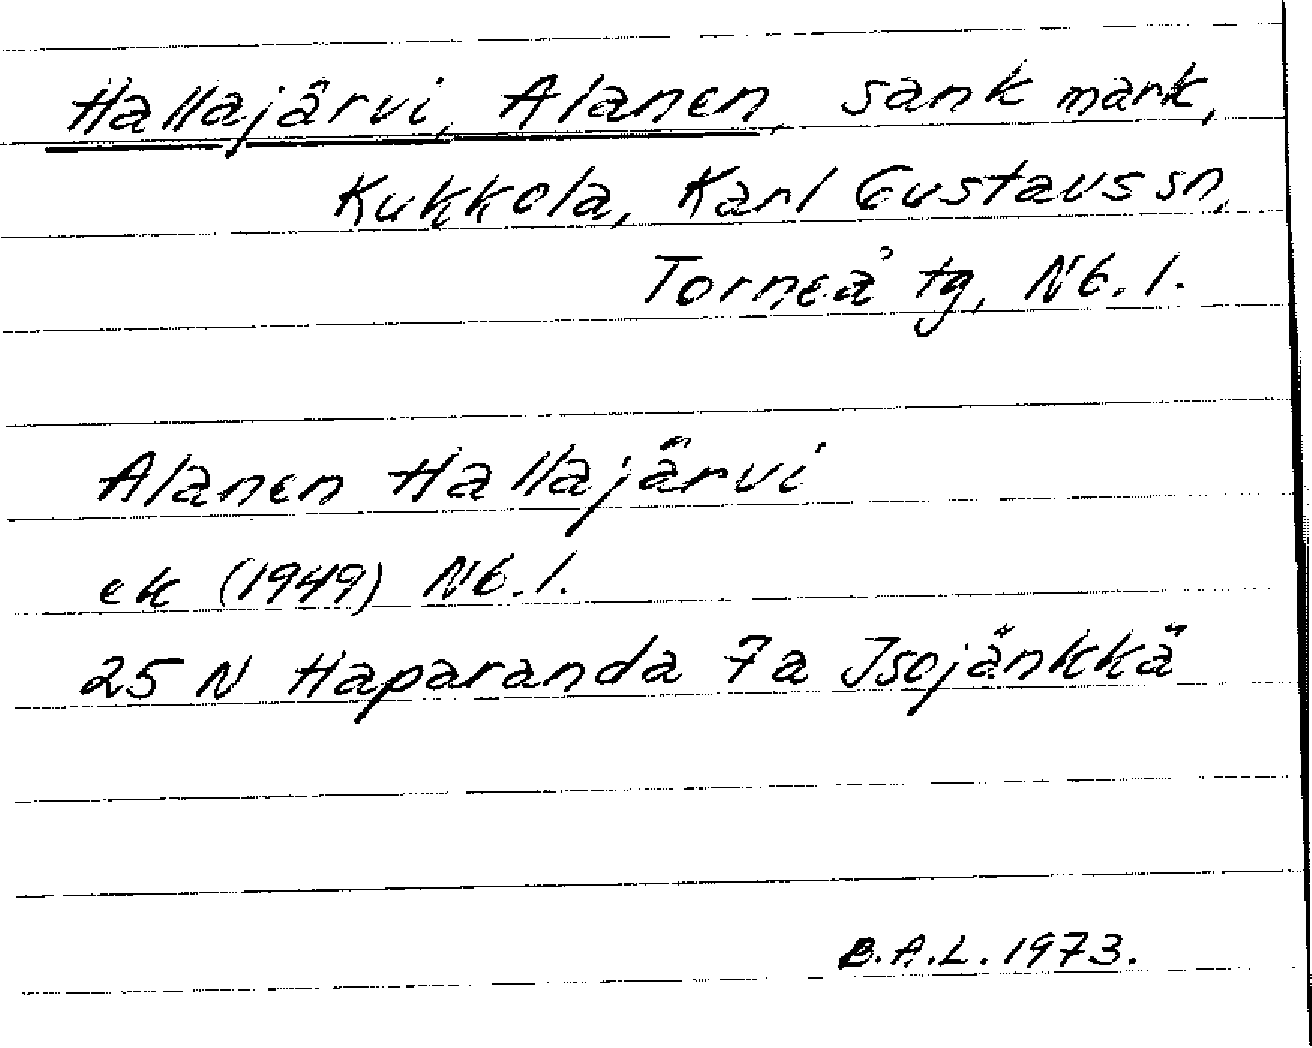 Hallajärvi, Alanen, sank mark,
Kukkola, Karl Gustavs sn,
Torneå tg, Nb. l.
Alanen Hallajärvi
ek (1949) Nb. l.
25 N Haparanda 7a Isojänkkä
B.A.L. 1973.